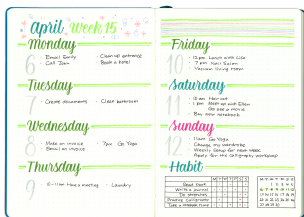 April Week 15
Monday
6
Email Emily
Call Jenn
Clean up entrance
Book a hotel
Tuesday
7
Create documents
Clean bathroom
Wednesday
8
Make an invoice
Send an invoice
7pm Go Yoga
Thursday
9
Have a meeting
Laundry
Friday
10
12 pm Lunch with Lisa
7 pm Nail Salon
Vacuum living room
Saturday
11
Hair cut
1 pm Meet up with Ellen
Go see a movie
Buy new notebook
Sunday
12
11am Go Yoga
Change my wardrobe
Weekly Setup for next week
Apply for the calligraphy workshop
Habit
M T W T F S S
Read book
Write a journal
Do stretches
Practice calligraphy
Take a walk